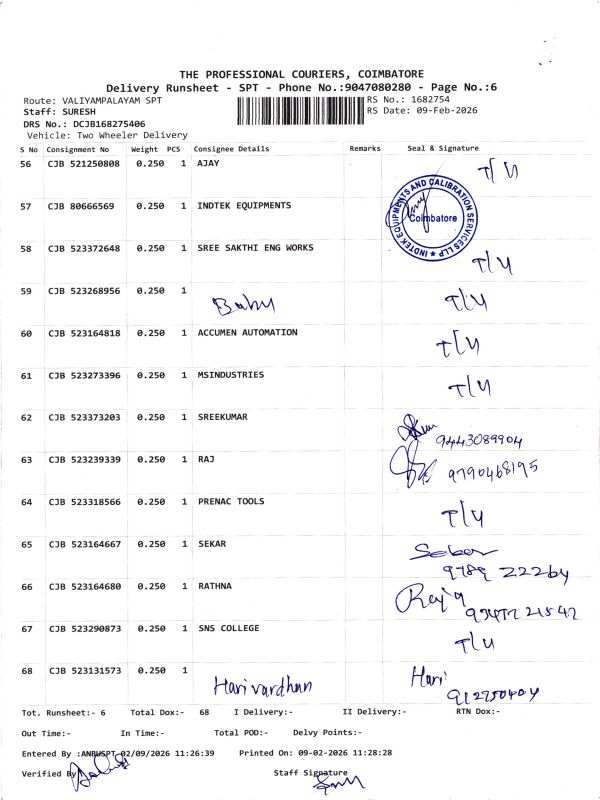 THE PROFESSIONAL COURIERS, COIMBATORE
Delivery Runsheet - SPT - Phone No.:9047080280 - Page No.:6
Route: VALIYAMPALAYAM SPT RS No.: 1682754
Staff: SURESH RS Date: 09-Feb-2026
DRS No.: DCJB168275406
Vehicle: Two Wheeler Delivery
S No Consignment No Weight PCS Consignee Details Remarks Seal & Signature
56 CJB 521250808 0.250 1 AJAY T/U
57 CJB 80666569 0.250 1 INDTEK EQUIPMENTS
INDTEK EQUIPMENTS AND CALIBRATION SERVICES LLP ★
Coimbatore
58 CJB 523372648 0.250 1 SREE SAKTHI ENG WORKS T/U
59 CJB 523268956 0.250 1 Babu T/U
60 CJB 523164818 0.250 1 ACCUMEN AUTOMATION T/U
61 CJB 523273396 0.250 1 MSINDUSTRIES T/U
62 CJB 523373203 0.250 1 SREEKUMAR 9443089904
63 CJB 523239339 0.250 1 RAJ 9790468195
64 CJB 523318566 0.250 1 PRENAC TOOLS T/U
65 CJB 523164667 0.250 1 SEKAR Seker
66 CJB 523164680 0.250 1 RATHNA
67 CJB 523290873 0.250 1 SNS COLLEGE T/U
68 CJB 523131573 0.250 1 Harivardhan Hari
Tot. Runsheet:- 6 Total Dox:- 68 I Delivery:- II Delivery:- RTN Dox:-
Out Time:- In Time:- Total POD:- Delvy Points:-
Entered By :ANBUSPT 02/09/2026 11:26:39 Printed On: 09-02-2026 11:28:28
Verified By Staff Signature